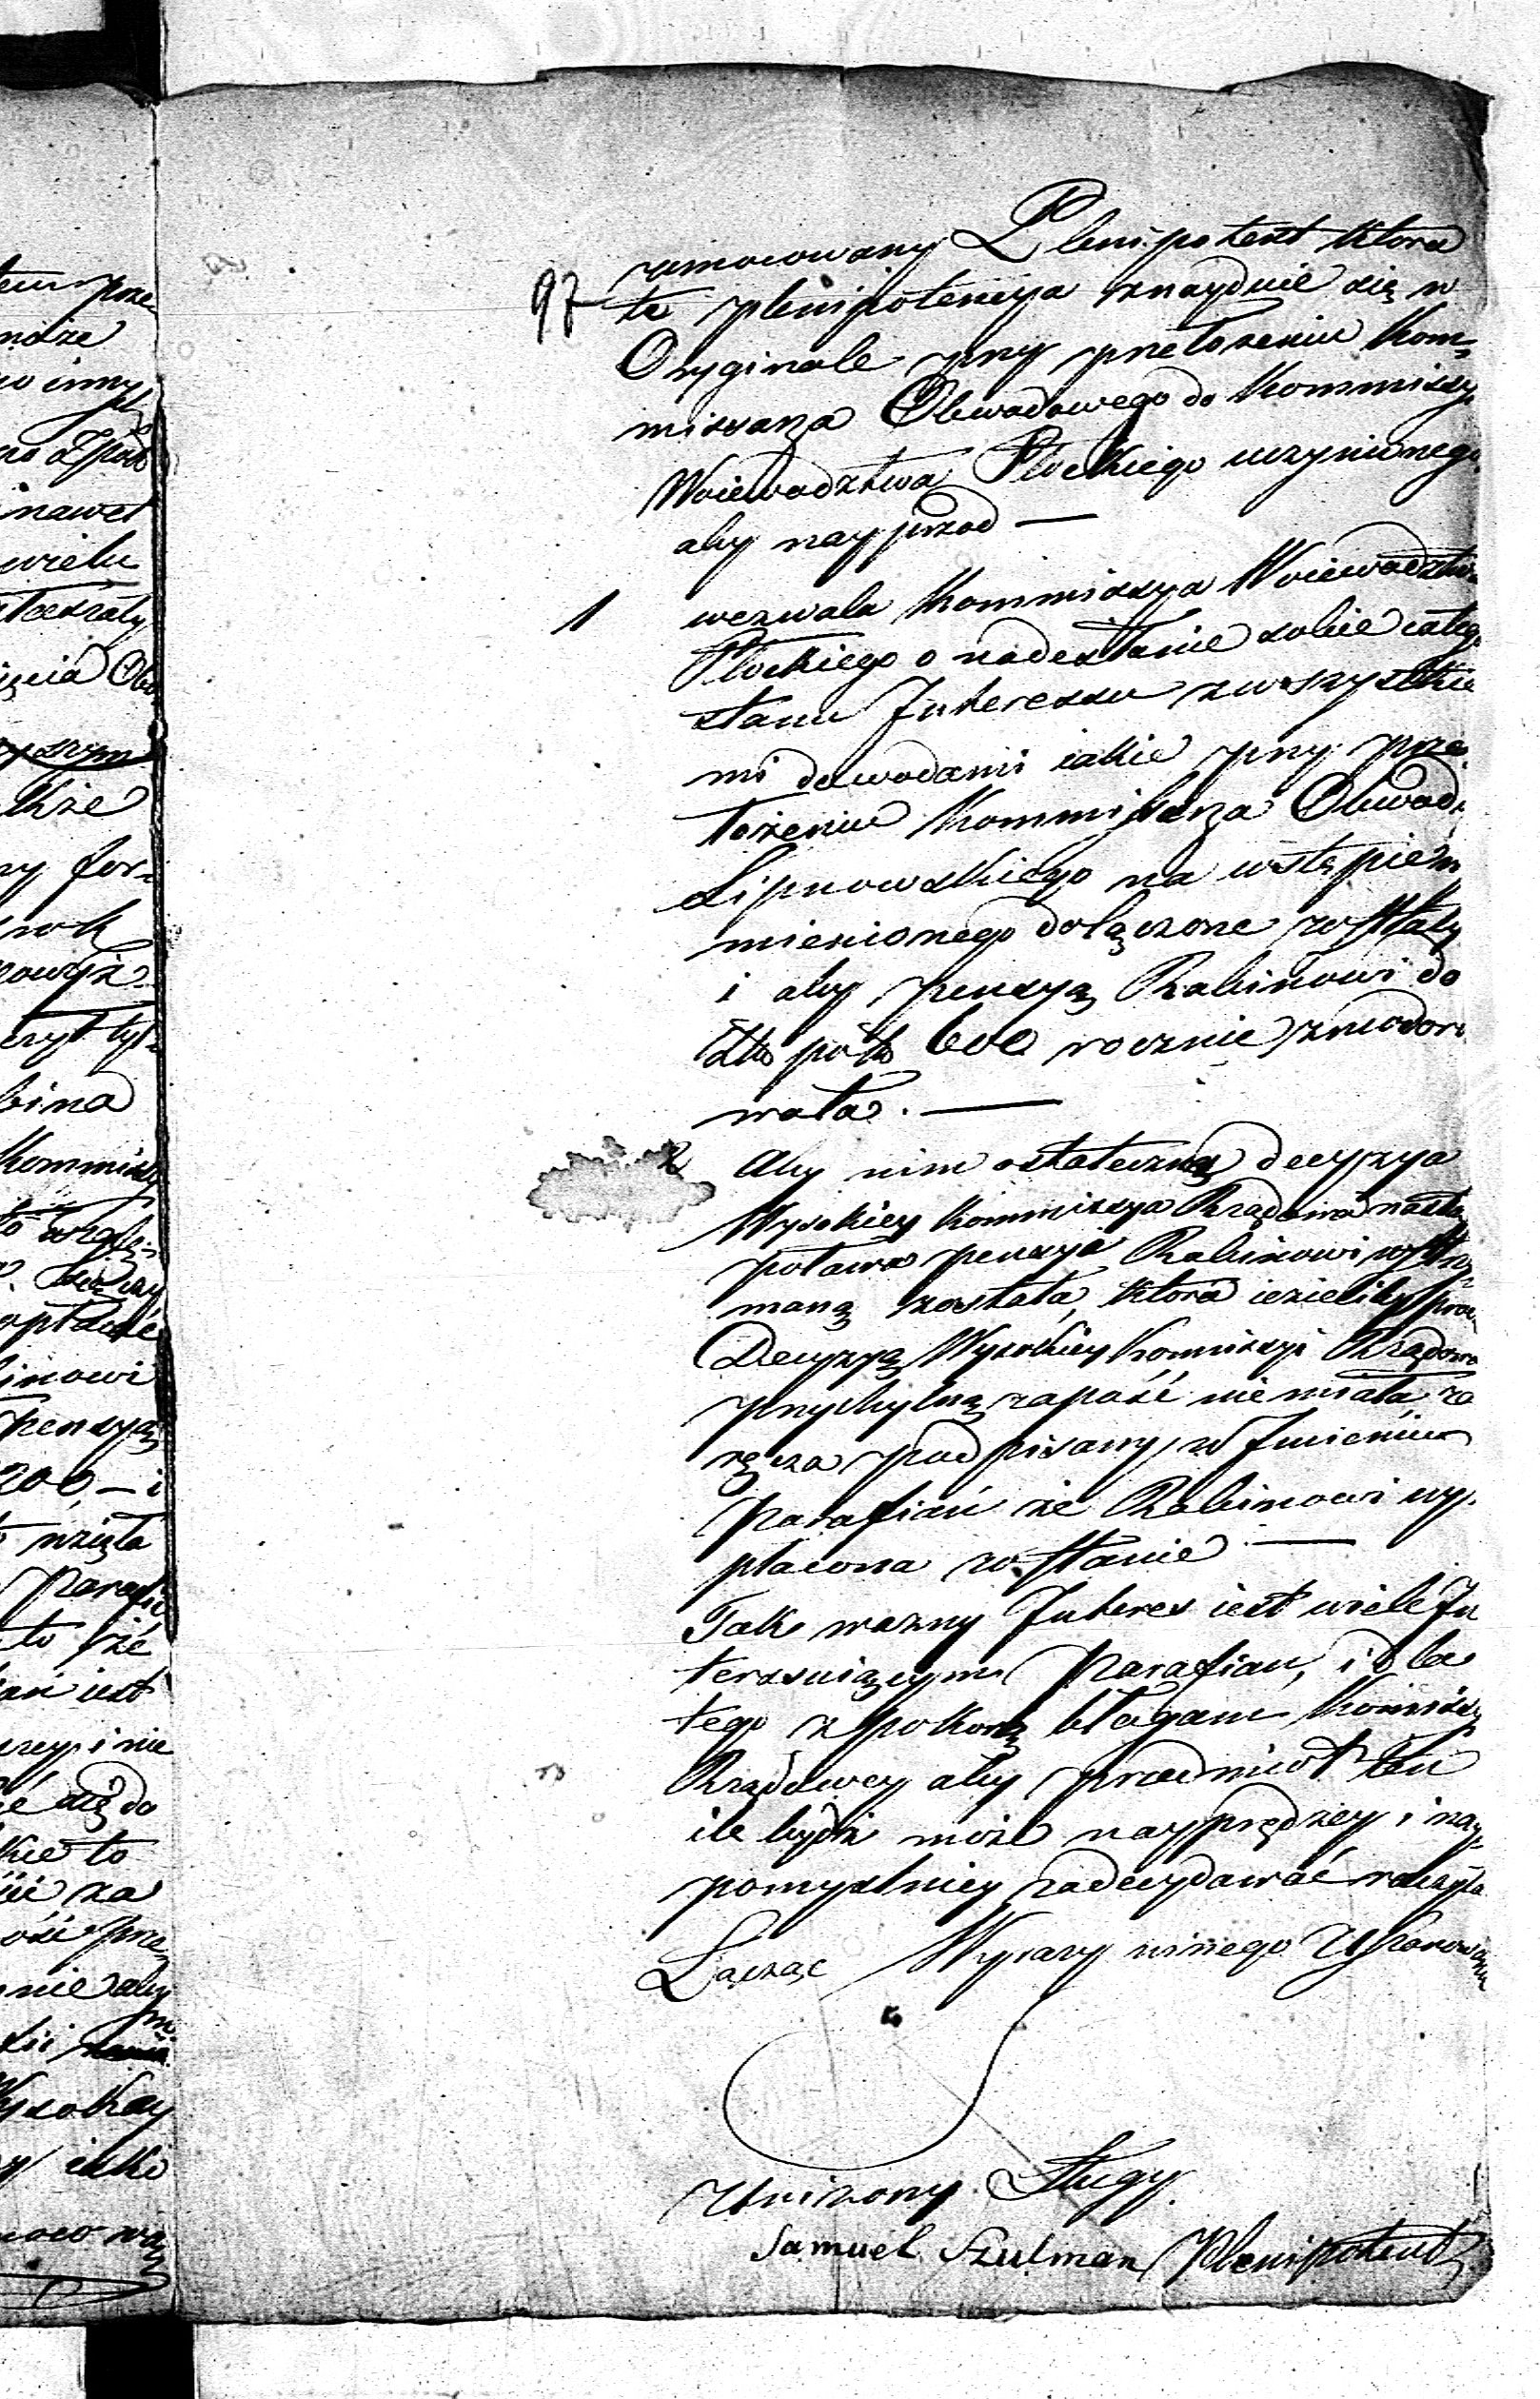 97
umocowany Plenipotent która
ta plenipotencya znayduie się w
Oryginale przy przełożeniu Kom=
missarza Obwodowego do Kommissyi
Woiewodztwa Płockiego uczynionego
aby nayprzod —
1 wezwała Kommissya Woiewodztwa
Płockiego o nadesłanie sobie całego
stanu Interessu z wszystkie
mi dowodami iakie przy prze
łożeniu Kommissarza Obwodu
Lipnowskiego na wstępie w
mienionego dołączone zostały
i aby pensyą Rabinowi do
Złło pols 600 rocznie zmodero
wała. —
2 Aby nim ostateczną decyzya
Wysokiey Kommissya Rządowa nastą
potawa pensyia Rabinowi wstrzy=
maną została, która ieżeliby przez
Decyzyą Wysokiey Kommissyi Rządowey
przychylną zapaść nie miała, za
ręcza podpisany w Imieniu
Parafian że Rabinowi wy
płacona zostanie —
Tak wazny Interes iest wiele In
teressuiącym Parafian, i dla
tego z pokorą błagam Kommissyi
Rządowey aby przedmiot ten
ile bydź może nayprędzey i nay=
pomyślniey zadecydować raczyła
Łącząc Wyrazy winego Uszanowania
Unizony Sługy
Samuel Szulman Plenipotent
tem prze
inny
nawet
wielu
szym
Kże
for=
bina
Kommissy
inowi
pensyą
200 — i
wzięła
Parafia
to że
iest
i nie
się do
kie to
za
prze
nie aby
Wysokiey
iako